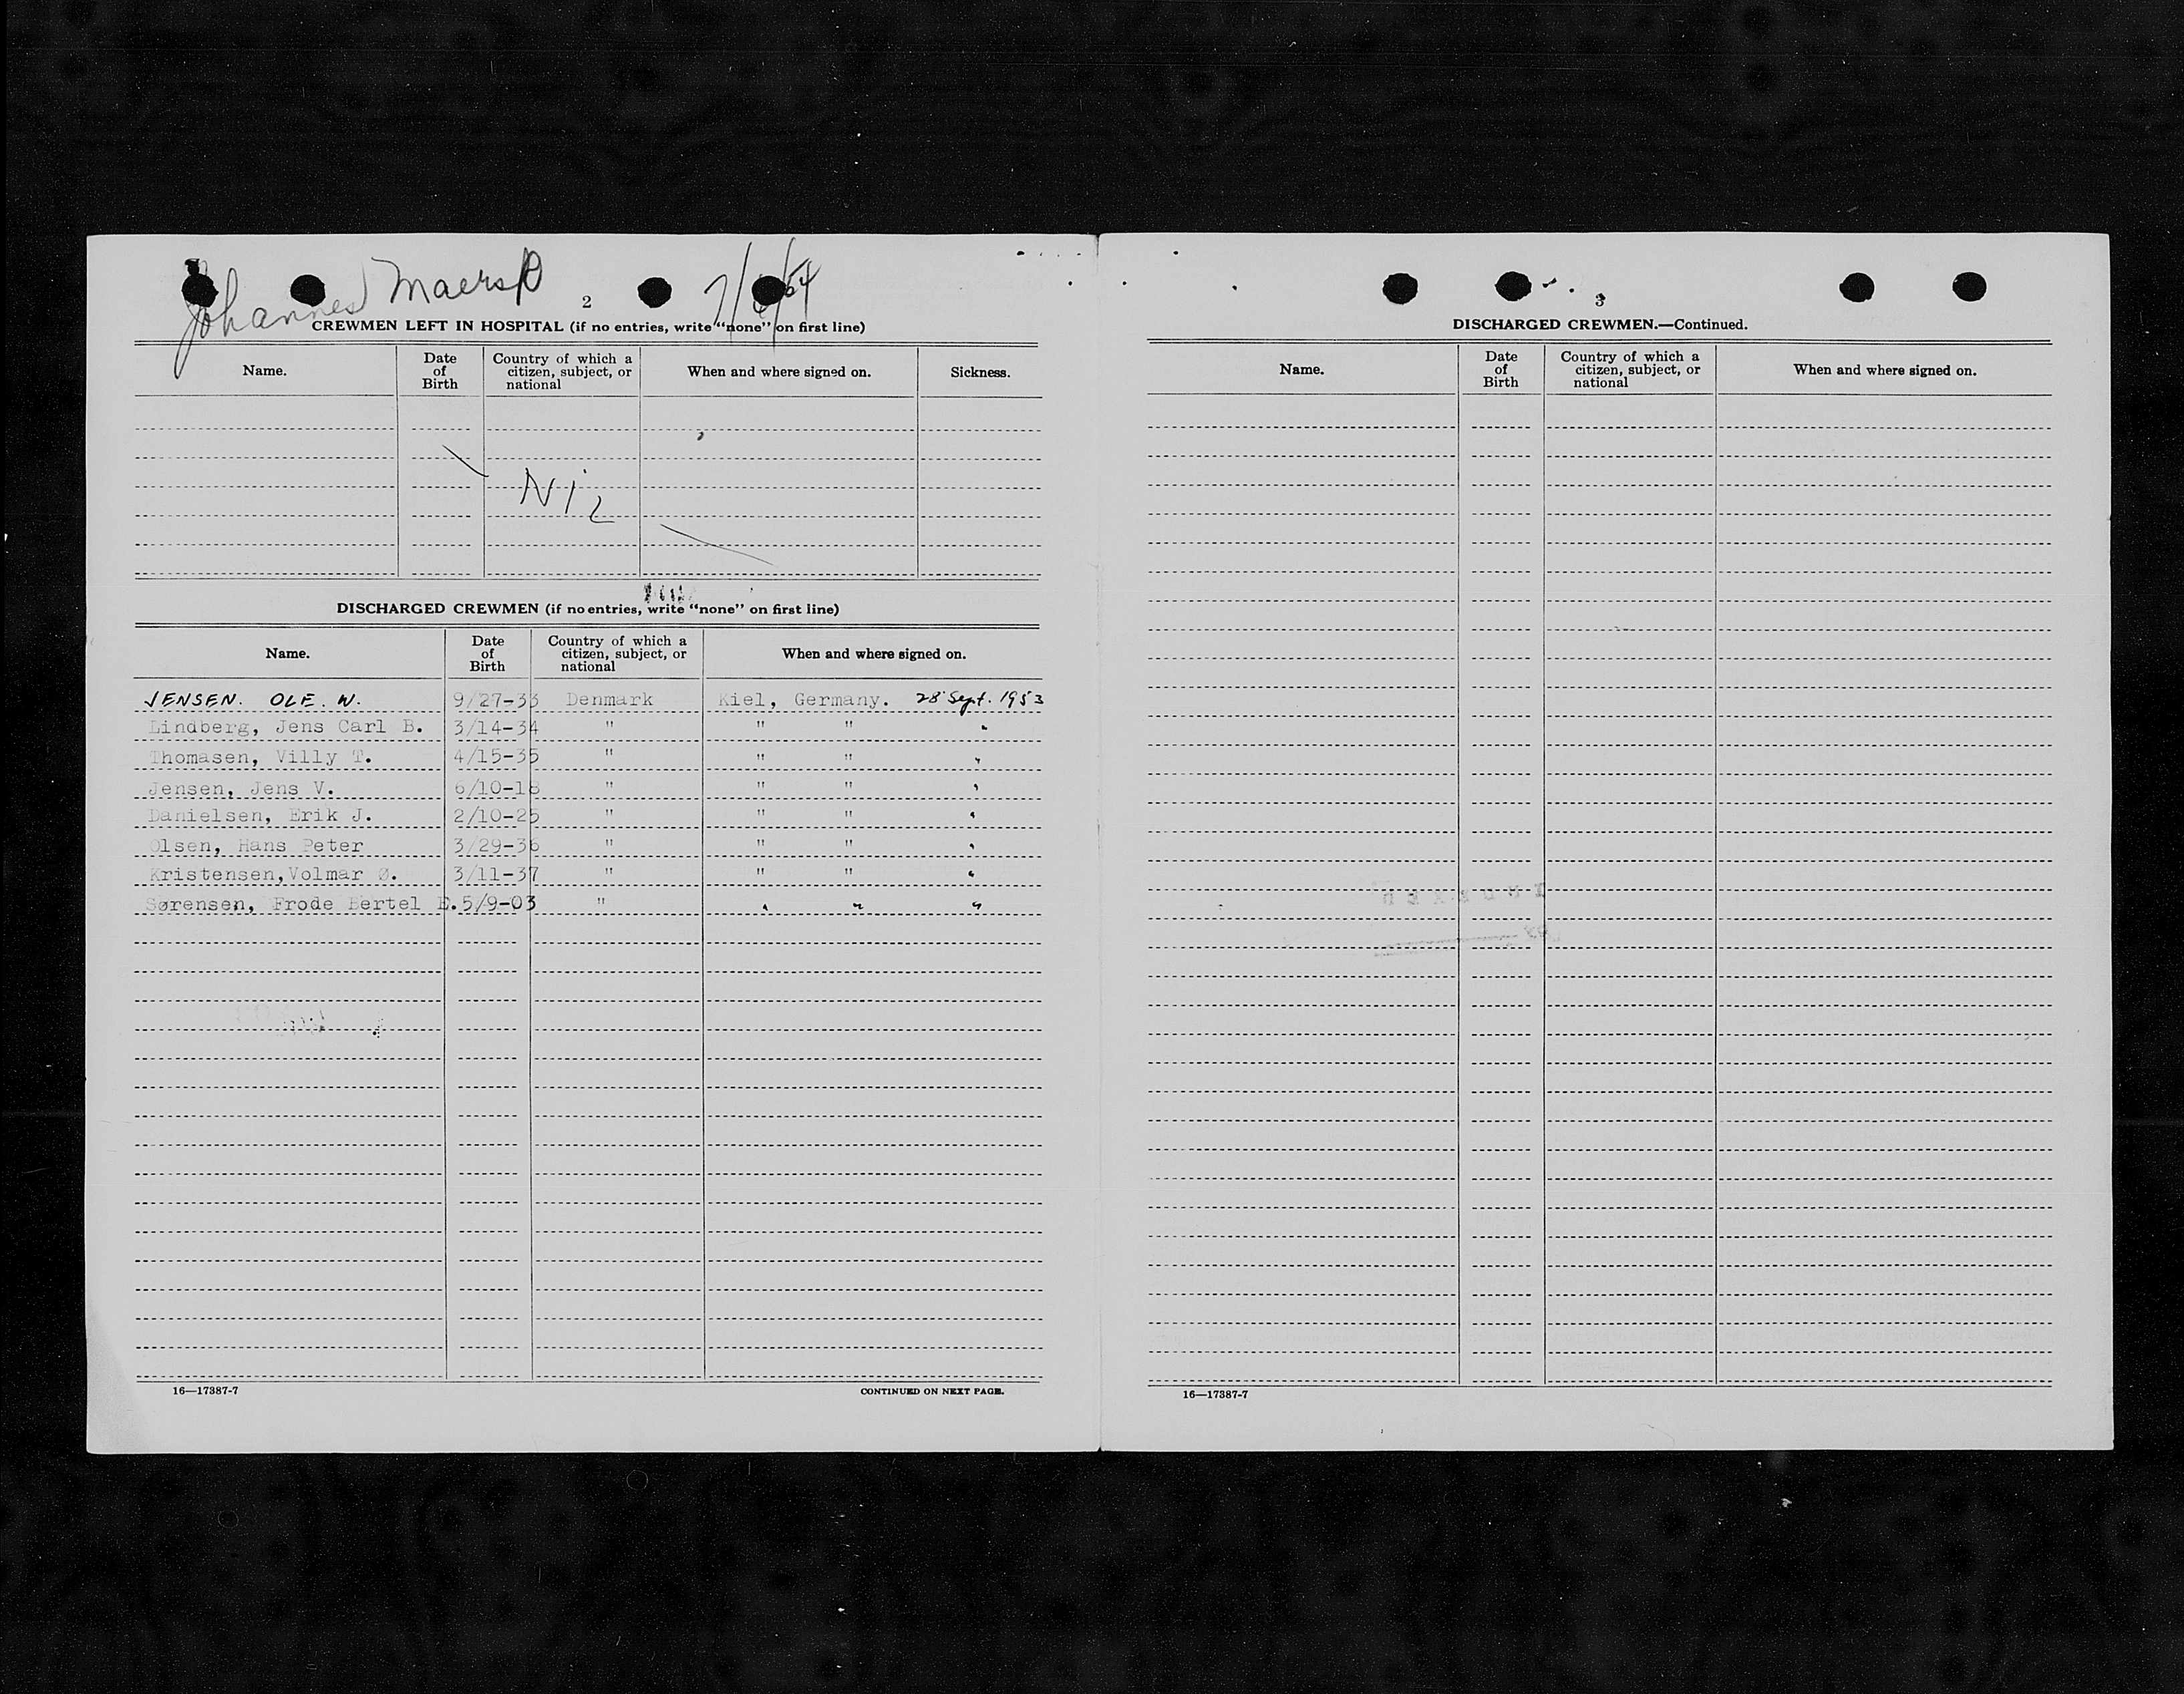 Johannes Maersk
2
7/6/54
CREWMEN LEFT IN HOSPITAL (if no entries, write “none” on first line)
Name. Date of Birth Country of which a citizen, subject, or national When and where signed on. Sickness.
NiL
DISCHARGED CREWMEN (if no entries, write “none” on first line)
Name. Date of Birth Country of which a citizen, subject, or national When and where signed on.
JENSEN. OLE. W. 9/27-33 Denmark Kiel, Germany. 28 Sept. 1953
Lindberg, Jens Carl B. 3/14-34 " " " "
Thomasen, Villy T. 4/15-35 " " " "
Jensen, Jens V. 6/10-18 " " " "
Danielsen, Erik J. 2/10-25 " " " "
Olsen, Hans Peter 3/29-36 " " " "
Kristensen,Volmar Ø. 3/11-37 " " " "
Sørensen, Frode Bertel E. 5/9-03 " " " "
16—17387-7
CONTINUED ON NEXT PAGE.
3
DISCHARGED CREWMEN.—Continued.
Name. Date of Birth Country of which a citizen, subject, or national When and where signed on.
16—17387-7